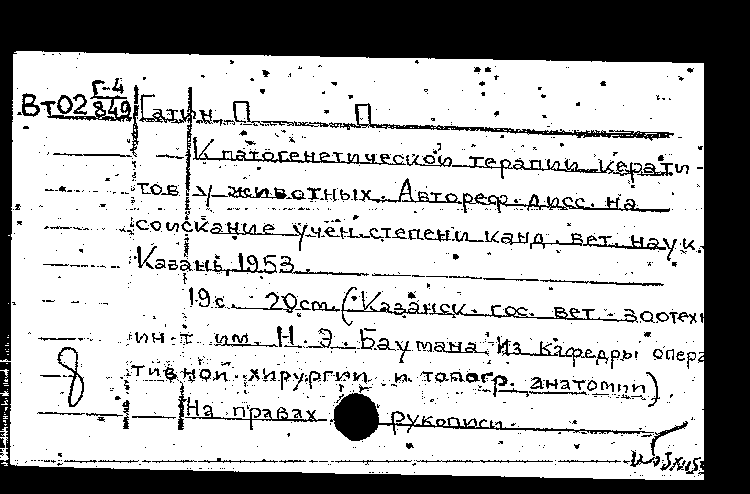 Вт02 Г-4
849
Гатин, П П
К патогенетической терапии керати-
тов у животных. Автореф. дисс. на
соискание учен. степени канд. вет. наук.
Казань, 1953.
19с. 20см. (Казанск. гос. вет.-зоотехн
ин-т им. Н. Э. Баумана. Из кафедры опера
тивной хирургии и топогр. анатомии).
На правах рукописи.
8